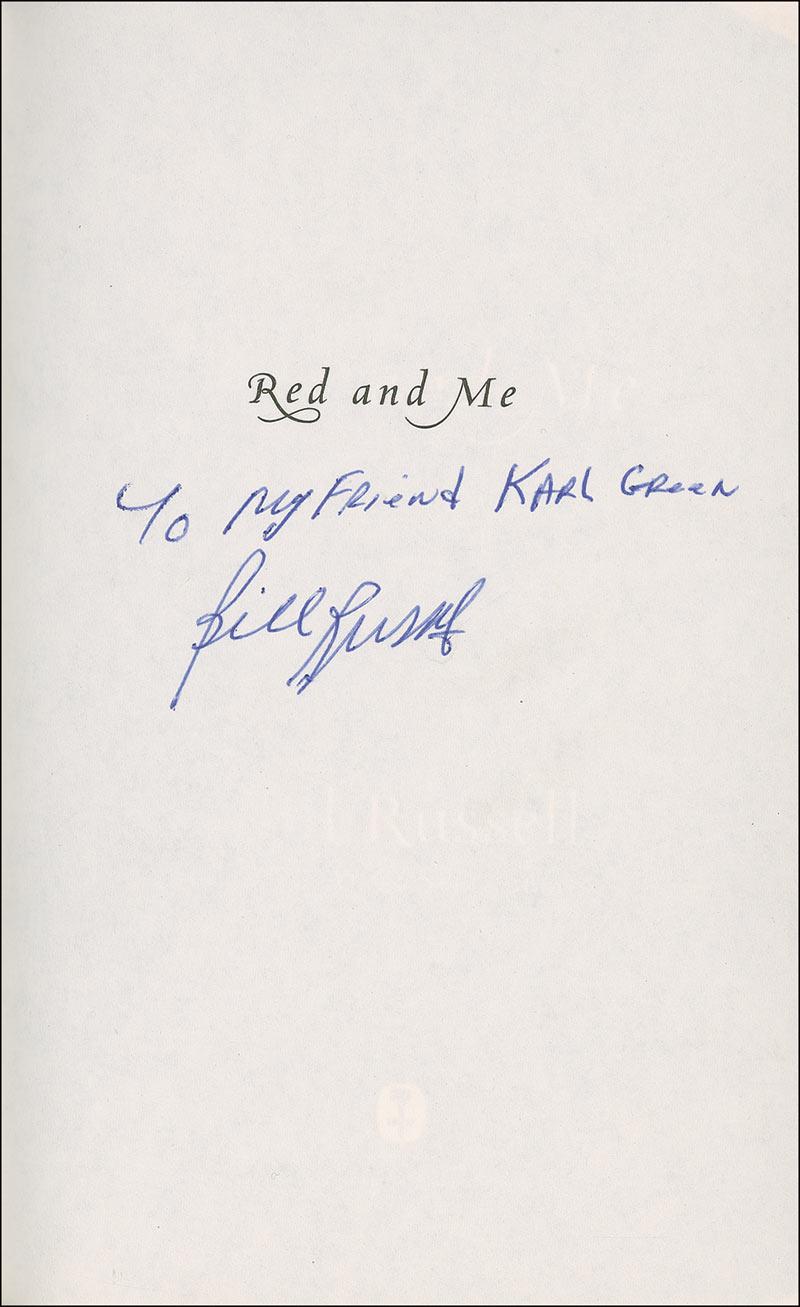 Red and Me
To My Friend Karl Green
Bill Russell
Russell